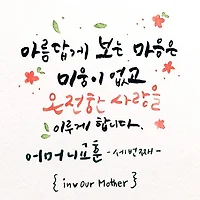 아름답게 보는 마음은
미움이 없고
온전한 사랑을
이루게 합니다.
어머니교훈 -세번째-
{ inv Our Mother }